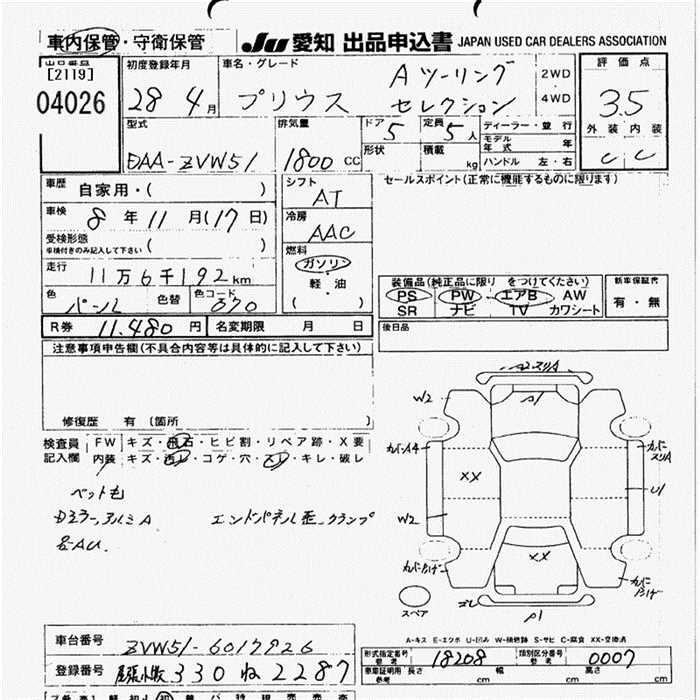 車内保管・守衛保管
JU 愛知 出品申込書 JAPAN USED CAR DEALERS ASSOCIATION
出品番号
[2119]
04026
初度登録年月
28 4 月
車名・グレード
プリウス
Aツーリング
セレクション
2WD
・
4WD
評価点
3.5
外装 内装
C C
型式
DAA-ZVW51
排気量
1800 CC
ドア
5
形状
定員
5 人
積載
kg
ディーラー・並行
モデル年式 年
ハンドル 左・右
車歴
自家用・( )
車検
8 年 11 月(17日)
受検形態
車検付きのみ記入して下さい
( )
走行
11万6千192 km
色
パール
色替
色コード
070
シフト
AT
冷房
AAC
燃料
ガソリン
軽・油
( )
セールスポイント(正常に機能するものに限ります)
装備品(純正品に限り をつけてください)
PS PW エアB AW
SR ナビ TV カワシート
新車保証書
有・無
後日品
R券 11.480 円
名変期限 月 日
注意事項申告欄(不具合内容等は具体的に記入して下さい)
修復歴 有 (箇所 )
検査員
記入欄
FW キズ・飛石・ヒビ割・リペア跡・X要
内装 キズ・汚レ・コゲ・穴・スレ・キレ・破レ
ペット毛
Dミラー、アルミA
エンドパネル歪、クランプ
各AU
W2
P1
カバーA4
XX
U1
W2
XX
スペア
P1
A-キズ E-エクボ U-凹み W-補修跡 S-サビ C-腐食 XX-交換済
車台番号
ZVW51-6017926
登録番号
尾張小牧 330 ね 2287
型式指定番号
参考
18208
類別区分番号
参考
0007
車証明用
参考
長さ cm
幅 cm
高さ cm